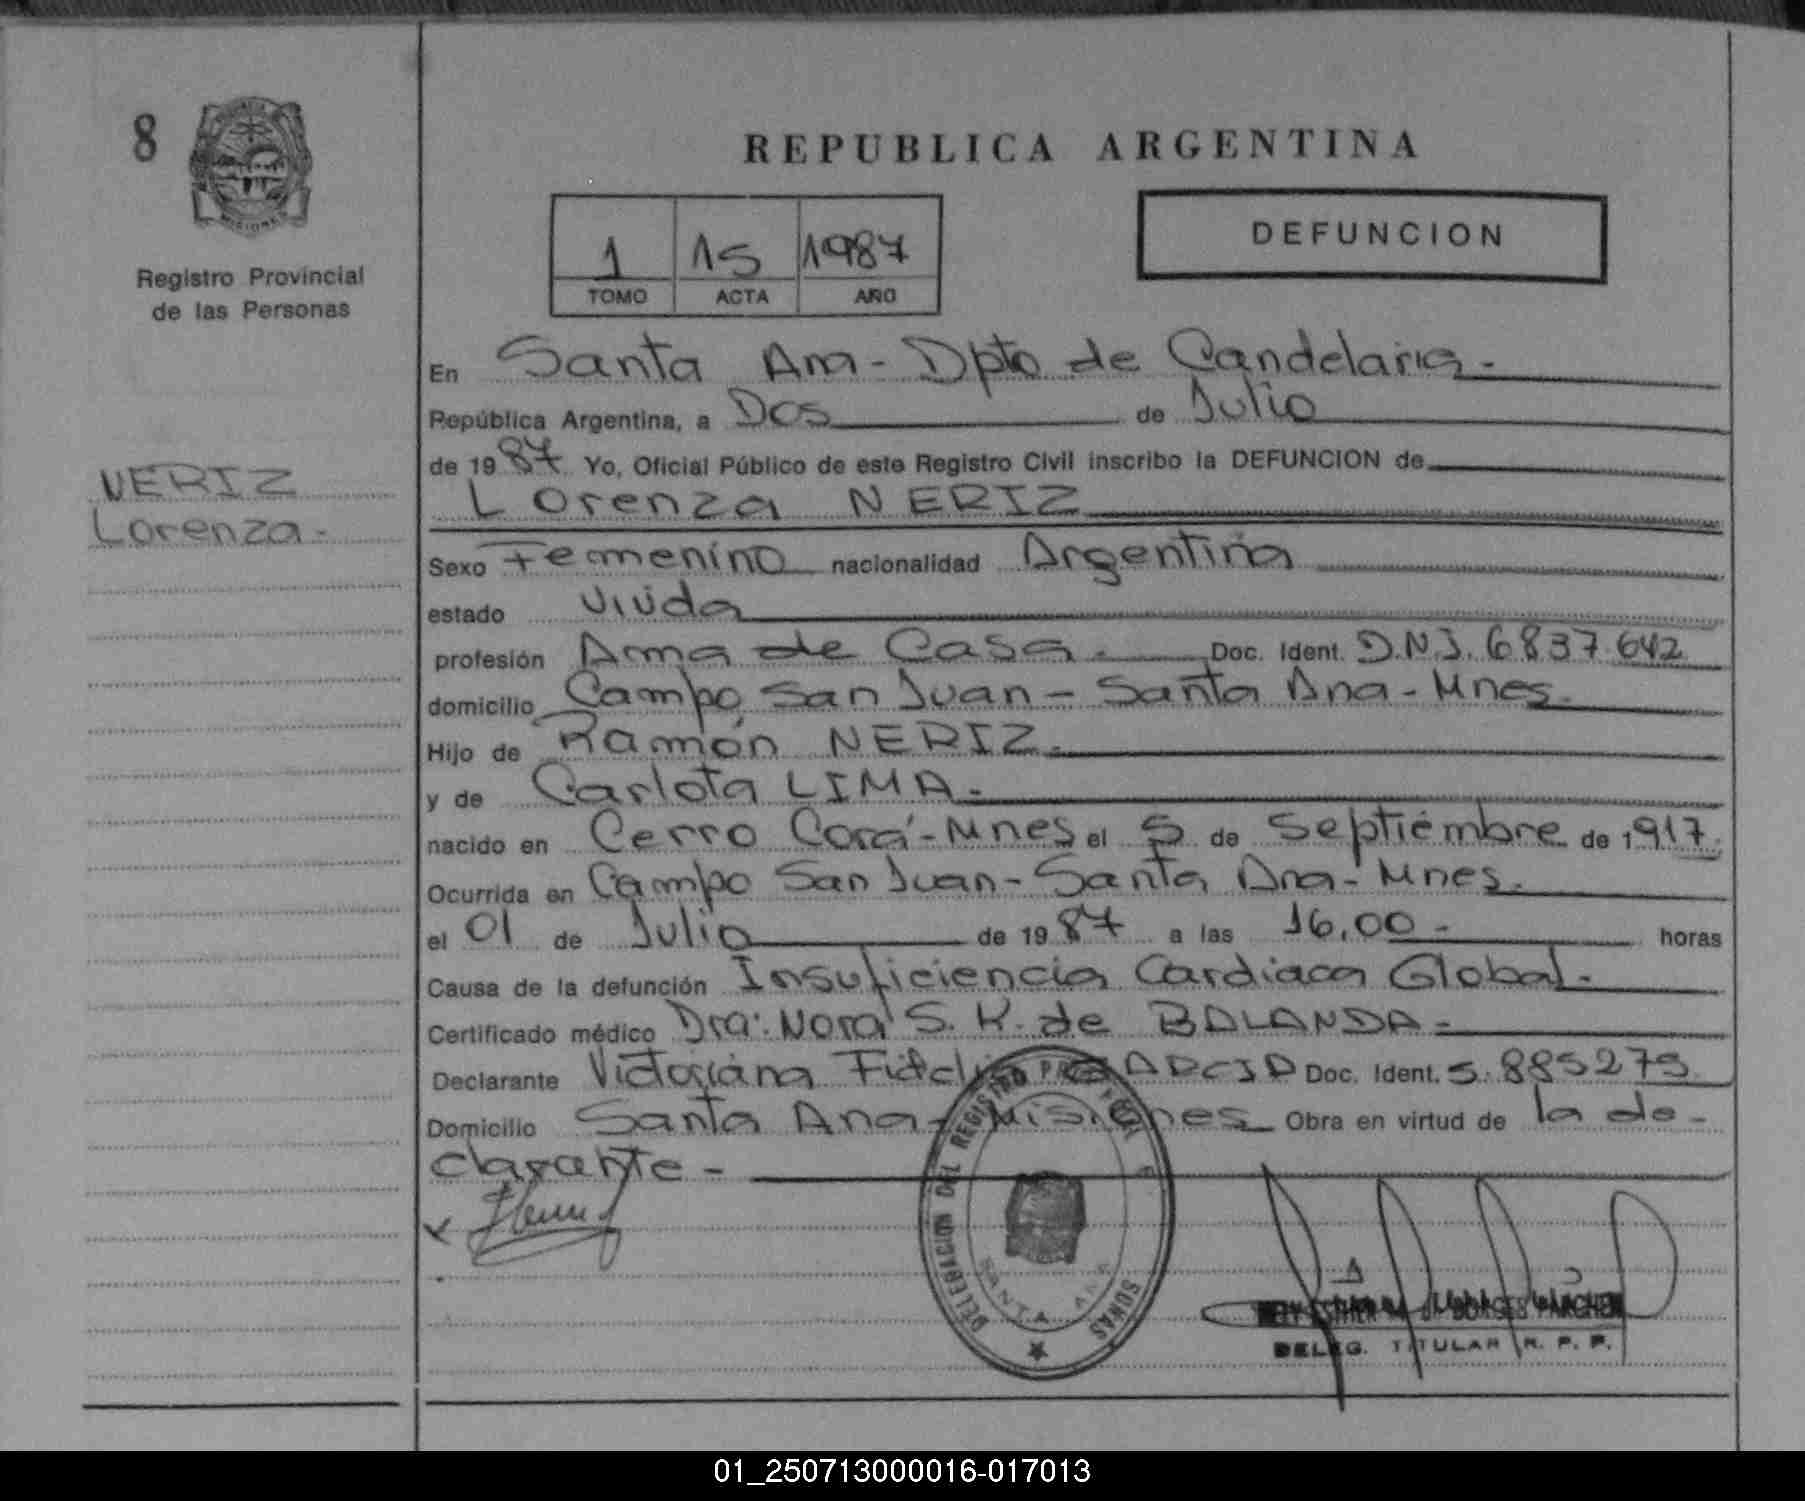 8
Registro Provincial
de las Personas
NERIZ
Lorenza.-
REPUBLICA ARGENTINA
1 15 1987
TOMO ACTA AÑO
DEFUNCION
En Santa Ana - Dpto de Candelaria.-
República Argentina, a Dos de Julio
de 1987 Yo, Oficial Público de este Registro Civil inscribo la DEFUNCION de
Lorenza NERIZ
Sexo Femenino nacionalidad Argentina
estado Viuda
profesión Ama de Casa.- Doc. Ident. D.N.I. 6837.642
domicilio Campo San Juan - Santa Ana - Mnes.
Hijo de Ramón NERIZ.
y de Carlota LIMA.-
nacido en Cerro Corá - Mnes el 5 de Septiembre de 1917.
Ocurrida en Campo San Juan - Santa Ana - Mnes.
el 01 de Julio de 1987 a las 16,00 - horas
Causa de la defunción Insuficiencia Cardiaca Global.-
Certificado médico Dra: Nora S. K. de BALANDA -
Declarante Victoriana GARCIA Doc. Ident. 5.885275
Domicilio Santa Ana - Misiones Obra en virtud de la de-
clarante -
DELEGACION DEL REGISTRO
SANTA ANA
DELEG. TITULAR R. P. P.
01_250713000016-017013